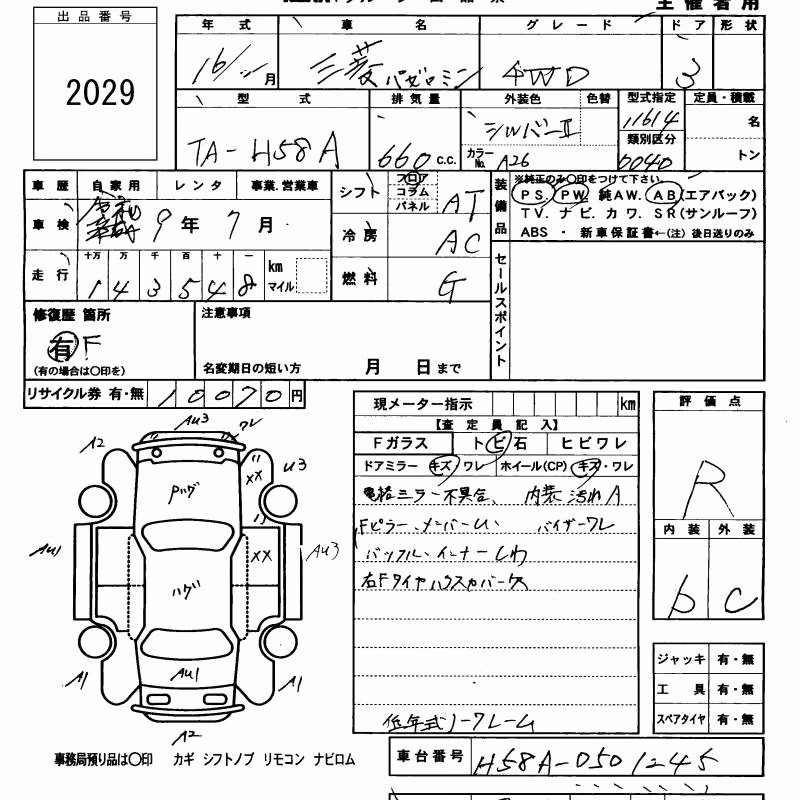 主催者用
出品番号
2029
年式 車名 グレード ドア 形状
16/ 月 三菱 パゼロミニ 4WD 3
型式 排気量 外装色 色替 型式指定 定員・積載
11614 名
TA-H58A 660 c.c. シルバーII 類別区分
カラーNo. A26 0040 トン
車歴 自家用 レンタ 事業.営業車
シフト フロア コラム パネル AT
装備品 ※純正のみ○印をつけて下さい。
PS. PW. 純AW. AB(エアバック)
TV. ナビ. カワ. SR(サンルーフ)
ABS ・ 新車保証書←(注) 後日送りのみ
車検 令和 平成 9年 7月
冷房 AC
走行 十万 万 千 百 十 一 km マイル
1 4 3 5 4 8
燃料 G
セールスポイント
修復歴 箇所
有 F
(有の場合は○印を)
注意事項
名変期日の短い方 月 日まで
リサイクル券 有・無 10070円
現メーター指示 km
【査定員記入】
Fガラス トビ石 ヒビワレ
ドアミラー キズ・ワレ ホイール(CP) キズ・ワレ
電格ミラー不具合、 内装汚れA
Fピラー、メンバーU、 バイザーワレ
バッフル、インナーしわ
右Fタイヤハウスカバー欠
低年式ノークレーム
評価点
R
内装 外装
b C
ジャッキ 有・無
工具 有・無
スペアタイヤ 有・無
AU3 ワレ
A2 XX U3
Pハゲ
AU1 XX AU3
ハゲ
AU1
A1 A1
A2
事務局預り品は○印 カギ シフトノブ リモコン ナビロム
車台番号 H58A-0501245